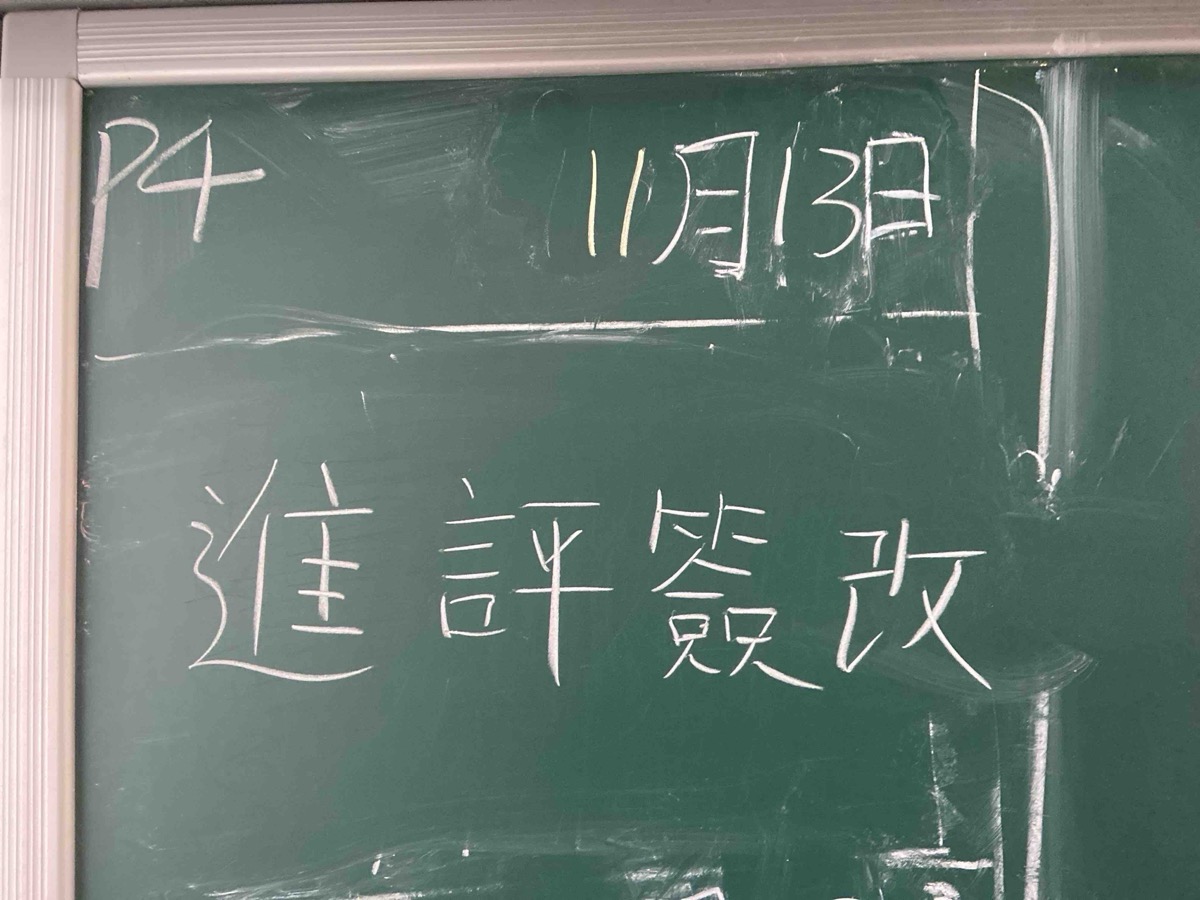 P4 11月13日
進評簽改